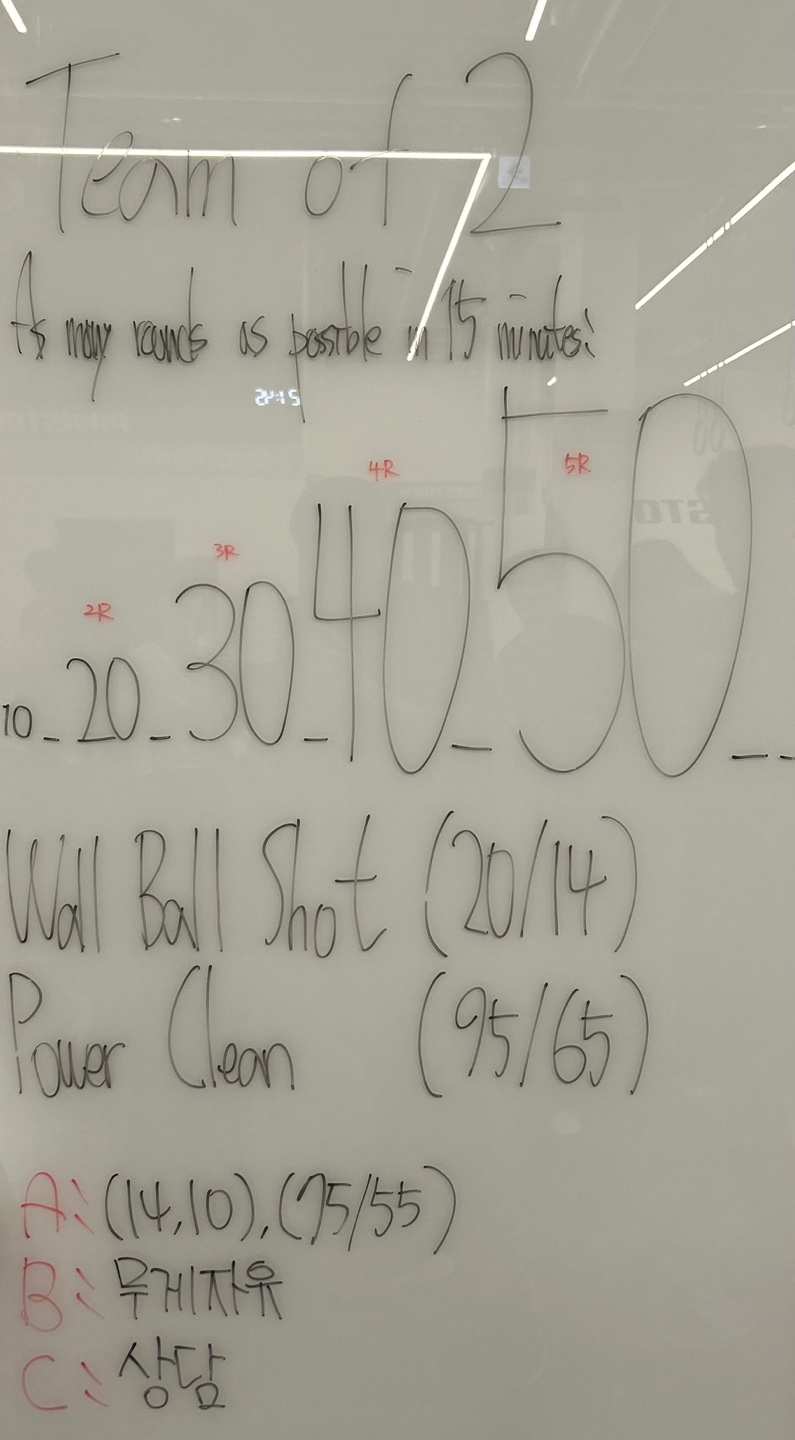 Team of 2
As many rounds as possible in 15 minutes:
2R 3R 4R 5R
10_20_30_40_50_ _
Wall Ball Shot (20/14)
Power Clean (95/65)
A: (14,10),(75/55)
B: 무게자유
C: 상담